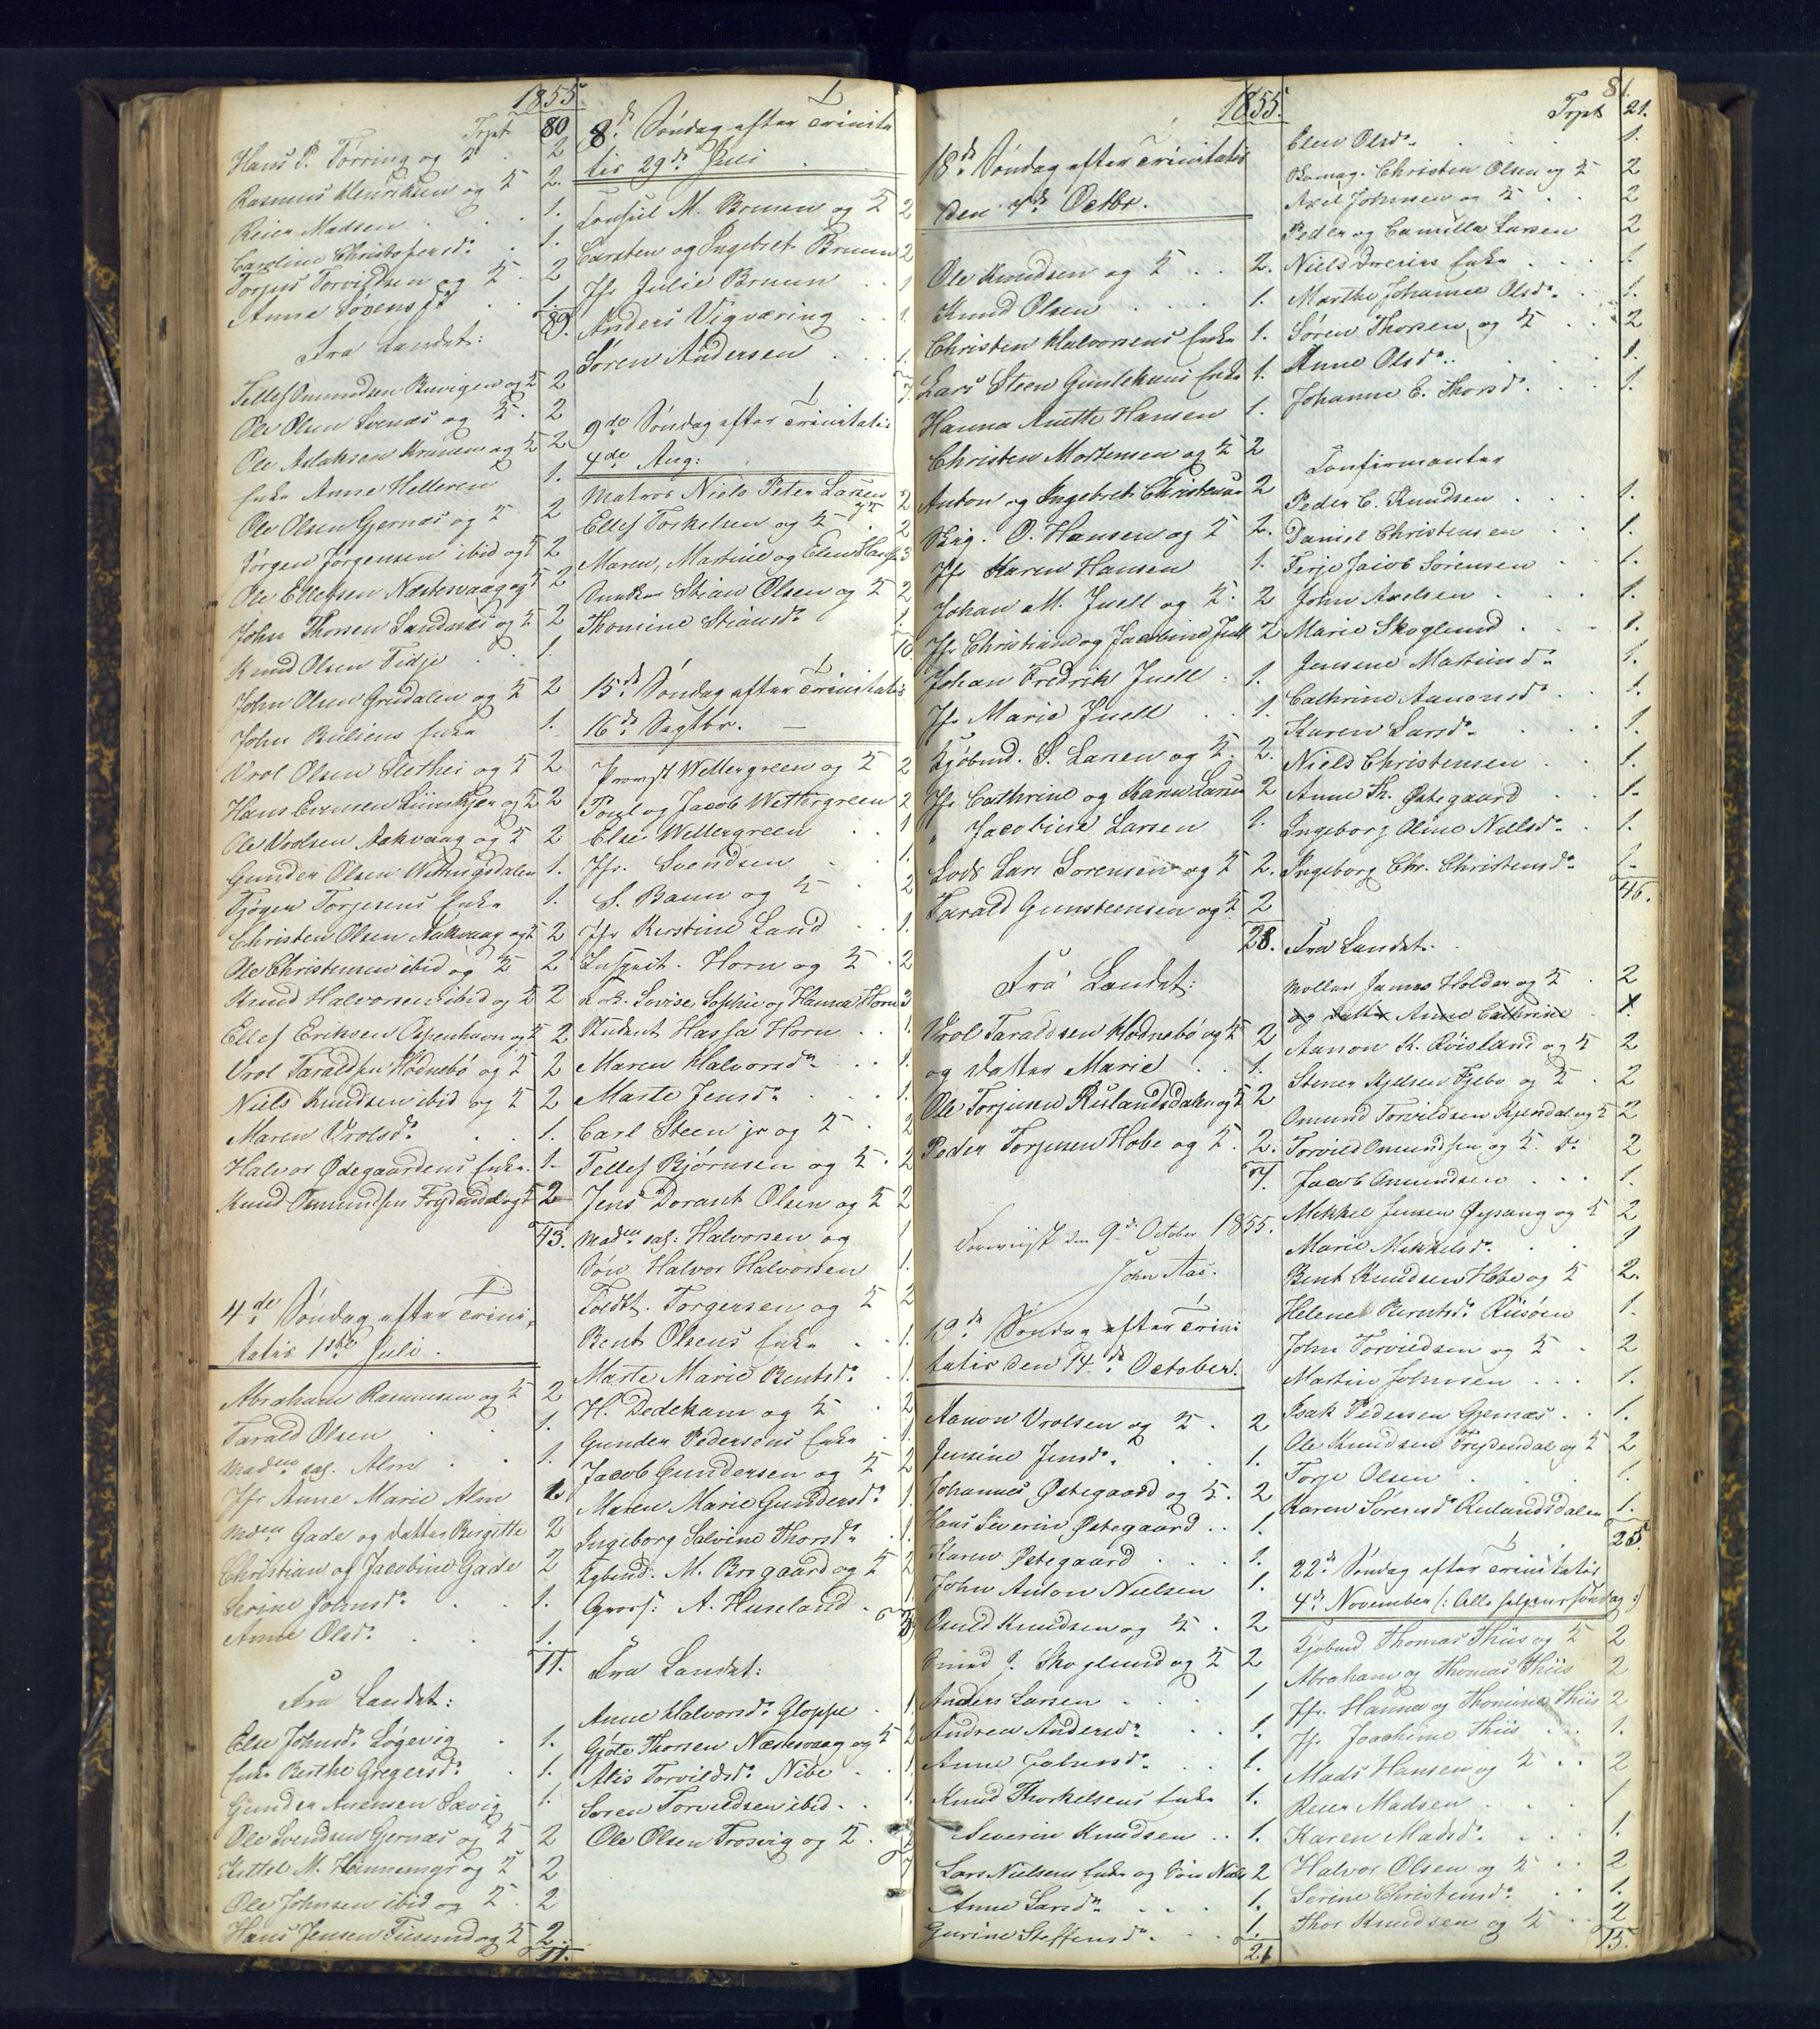 1855
Trpt 80
Hans P. Törring og H 2
Rasmus Henriksen og H 2.
Reier Madsen 1.
Caroline Christofersdr. 1.
Torjus Torvildsen og H 2
Anna Sørens 1.
89.
Fra Landet:
Tellef Omundsen Buvigen og H 2
Ole Olsen Svenæs og H. 2
Ole Aslaksen og H 2
Enke Anne Helleren 1.
Ole Olsen Gjernæs og H 2
Jörgen Jörgensen ibid og H 2
Ole Ellefsen Næstesvaag og H 2
John Thorsen Sandnæs og H 2
Knud Olsen Fidje 1.
John Olsen Grudalen og H 2
John Enke 1.
Vrol Olsen Slethei og H 2
Hans Evensen og H 2
Ole Vrolsen Aakvaag og H 2
Gunder Olsen 1.
Torjesens Enke 1.
Christen Olsen Aakvaag og H 2
Ole Christensen ibid og H 2
Knud Halvorsen ibid og H 2
Ellef Eriksen Espenhavn og H 2
Vrol Taraldsen Hödnebö og H 2
Niels Knudsen ibid og H 2
Maren Vrolsdr. 1.
Halvor Ödegaardens Enke 1.
Knud Omundsen Frydendal og H 2
43.
4de Söndag efter Trini-
tatis 1ste Juli.
Abraham Rasmusen og H 2
Tarald Olsen 1.
Madm sal. Alm 1.
Jfr Anne Marie Alm 1.
Mdm Gade og Datter Birgitte 2
Christian og Jacobine Gade 2
Serine Johnsdr. 1.
Anne Olsdr. 1.
11.
Fra Landet:
Else Johnsdr. Lögevig 1.
Enke Berthe Gregersdr. 1.
Gunder Ausensen Sævig 1.
Ole Svendsen Gjernæs og H 2
Kittel M. Hinnemyr og H 2
Ole Johnsen ibid og H 2
Hans Jensen og H 2.
11.
8de Söndag efter Trinita
tis 29de Juli
Consul M. Bruun og H 2
Carsten og Ingebret Bruun 2
Jfr Julie Bruun 1
Anders Vigværing 1.
Sören Andersen 1.
7.
9de Söndag efter Trinitatis
4de Aug:
Matros Niels Peter Larsen og H 2
Ellef Torkelsen og H 2
Maren, Martine og Elen 3
Stian Olsen og H 2
Thomine Stiansdr. 1.
10.
15de Söndag efter Trinitatis
16de Septbr.
Provst Wettergreen og H 2
Povl og Jacob Wettergreen 2
Else Wettergreen 1
Jfr. Svendsen 1.
S. Baun og H 2
Jfr Kerstine Lund 1.
Inspect. Horn og H. 2
Lovise, Sophie og Hanna Horn 3
Student Hassa Horn 1.
Maren Halvorsdr. 1.
Marte Jensdr. 1.
Carl Steen jr og H. 2
Tellef Björnsen og H. 2
Jens Dorant Olsen og H 2
Madm sal: Halvorsen og 1
Sön Halvor Halvorsen 1.
Torgersen og H 2
Bent Olsens Enke 1.
Marte Marie Bentsdr. 1.
H. Dedekam og H 2
Gunder Pedersens Enke 1.
Jacob Gundersen og H 2
Maren Marie Gundersdr. 1.
Ingeborg Salvine Thorsdr. 1.
Kjbmd. M. Bregaard og H 2
Gross: A. Huseland 1
Fra Landet:
Anne Halvorsdr. Gloppe 1
Gjöte Thorsen Næstesvaag og H 2
Alis Torvildsdr. Nibe 1
Sören Torvildsen ibid. 1.
Ole Olsen Trosvig og H. 2
7
1855.
18de Söndag efter Trinitatis
den 7de Octbr.
Ole Knudsen og H 2.
Knud Olsen 1.
Christen Halvorsens Enke 1.
Lars Steen Gundersens Enke 1.
Hanna Anette Hansen 1.
Christen Mortensen og H 2
Anton og Ingebret Christensen 2
O. Hansen og H 2.
Jfr Karen Hansen 1.
Johan M. Juell og H. 2
Jfr Christiane og Jacobine Juell 2
Johan Fredrik Juell 1.
Jfr Marie Juell 1.
Kjöbmd. S. Larsen og H. 2.
Jfr Cathrine og Karen Larsen 2
" Jacobine Larsen 1.
Lods Lars Sorensen og H 2.
Tarald Gunsteensen og H 2
28.
Fra Landet:
Vrol Taraldsen Hödnebö og H 2
og Datter Marie 1.
Ole Torjusen Ruslandsdalen og H 2
Peder Torjusen Hobe og H. 2.
7.
den 9de October 1855.
John Aas.
19de Söndag efter Trini
tatis den 14de October.
Aanon Vrolsen og H. 2
Jensine Jensdr. 1.
Johannes Östegaard og H. 2
Hans Severin Östegaard 1.
Karen Östegaard 1.
John Anton Nielsen 1.
Osuld Knudsen og H. 2
J. Skoglund og H 2
Anders Larsen 1
Andrea Andersdr. 1.
Anne 1.
Knud Thorkelsens Enke 1.
Severin Knudsen 1.
Lars Nielsens Enke og Sön Niels 2
Anne Larsdr. 1.
Gurine Steffensdr. 1.
21
81.
Trpt 21.
Elen Olsdr. 1.
Christen Olsen og H 2
Axel Johnsen og H 2
Peder og Camilla Larsen 2
Niels Enke 1.
Marthe Johanne Olsdr. 1.
Sören Thorsen og H 2
Anne Olsdr. 1.
Johanne E. Thorsdr. 1.
Confirmanter
Peder C. Knudsen 1.
Daniel Christensen 1.
Terje Jacob Sörensen 1.
John Axelsen 1.
Marie Skoglund 1.
Jensine Martinsdr. 1.
Cathrine Aanonsdr. 1.
Karen Larsdr. 1.
Niels Christensen 1.
Anne K. Östegaard 1.
Ingeborg Oline Nielsdr. 1.
Ingeborg Chr. Christensdr. 1.
46.
Fra Landet.
Möller James Holder og H 2
og Datter Anne Cathrine 1.
Aanon K. Röisland og H 2
Stener Kjelsen Fjebo og H 2
Omund Torvildsen og H 2
Torvild Omundsen og H. dr. 2
Jacob Omundsen 1.
Mikkel Jensen Öysang og H 2
Marie Mikkelsdr. 1
Bent Knudsen Hobe og H 2.
Helene Berntsdr. Riisöen 1.
John Torvildsen og H. 2
Martin Johnsen 1.
Isak Pedersen Gjernæs 1.
Ole Knudsen Frydendal og H 2
Torje Olsen 1.
Karen Sörensdr Ruslandsdalen 1.
25.
22de Söndag efter Trinitatis
4de November (: Alle helgens söndag :)
Kjöbmd. Thomas Thiis og H 2
Abraham og Thomas Thiis 2
Jfr. Hanna og Thomine Thiis 2
Jfr Joachime Thiis 1.
Mads Hansen og H 2
Reier Madsen 1
Karen Madsdr. 1.
Halvor Olsen og H 2
Serine Christensdr. 1.
Thor Knudsen og H 2
15.